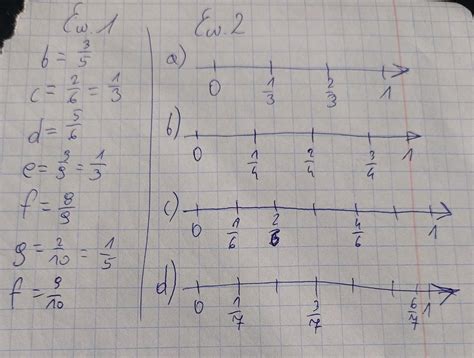 Ew. 1
b = 3/5
c = 2/6 = 1/3
d = 5/6
e = 3/9 = 1/3
f = 9/9
g = 2/10 = 1/5
f = 9/10
Ew. 2
a)
0 1/3 2/3 1
b)
0 1/4 2/4 3/4 1
c)
0 1/6 2/6 4/6 1
d)
0 1/7 3/7 6/7 1